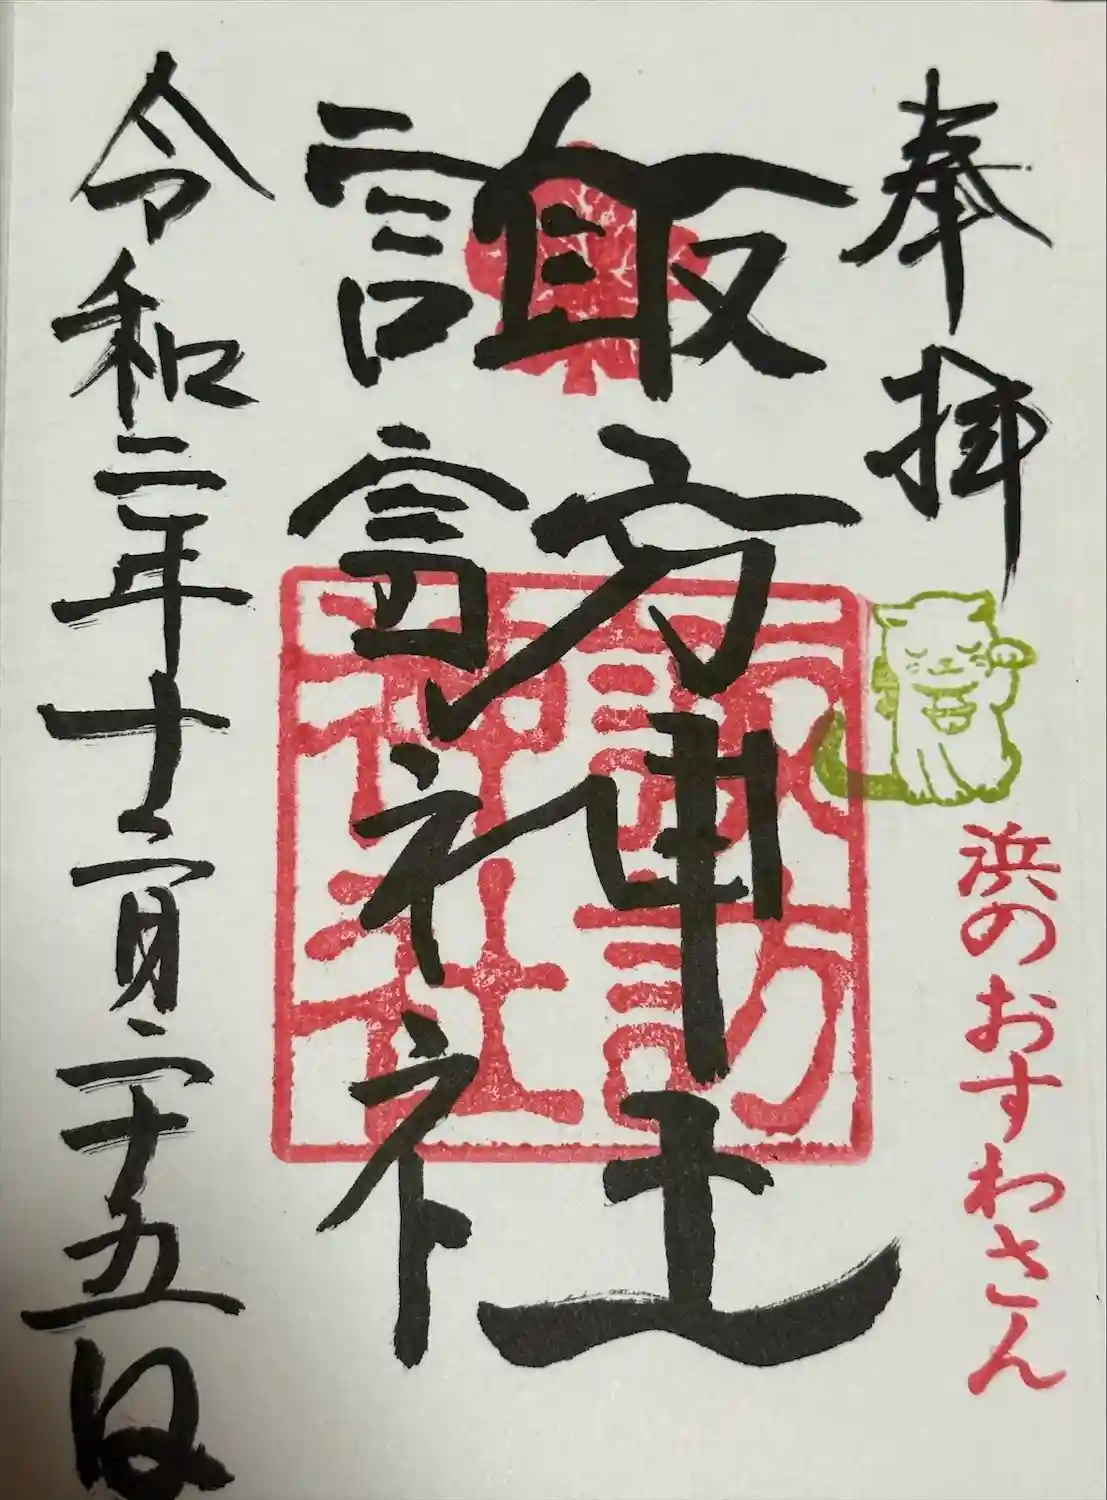 奉拝
浜のおすわさん
諏訪神社
諏訪神社
令和二年十二月二十五日